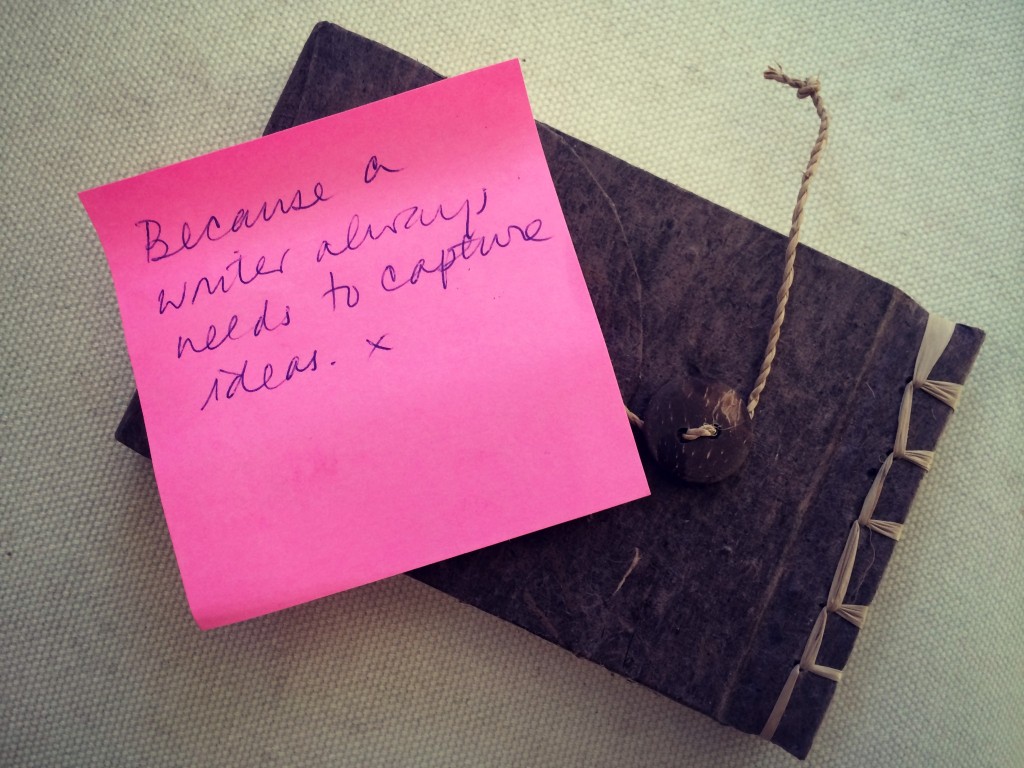 Because a
writer always
needs to capture
ideas. x